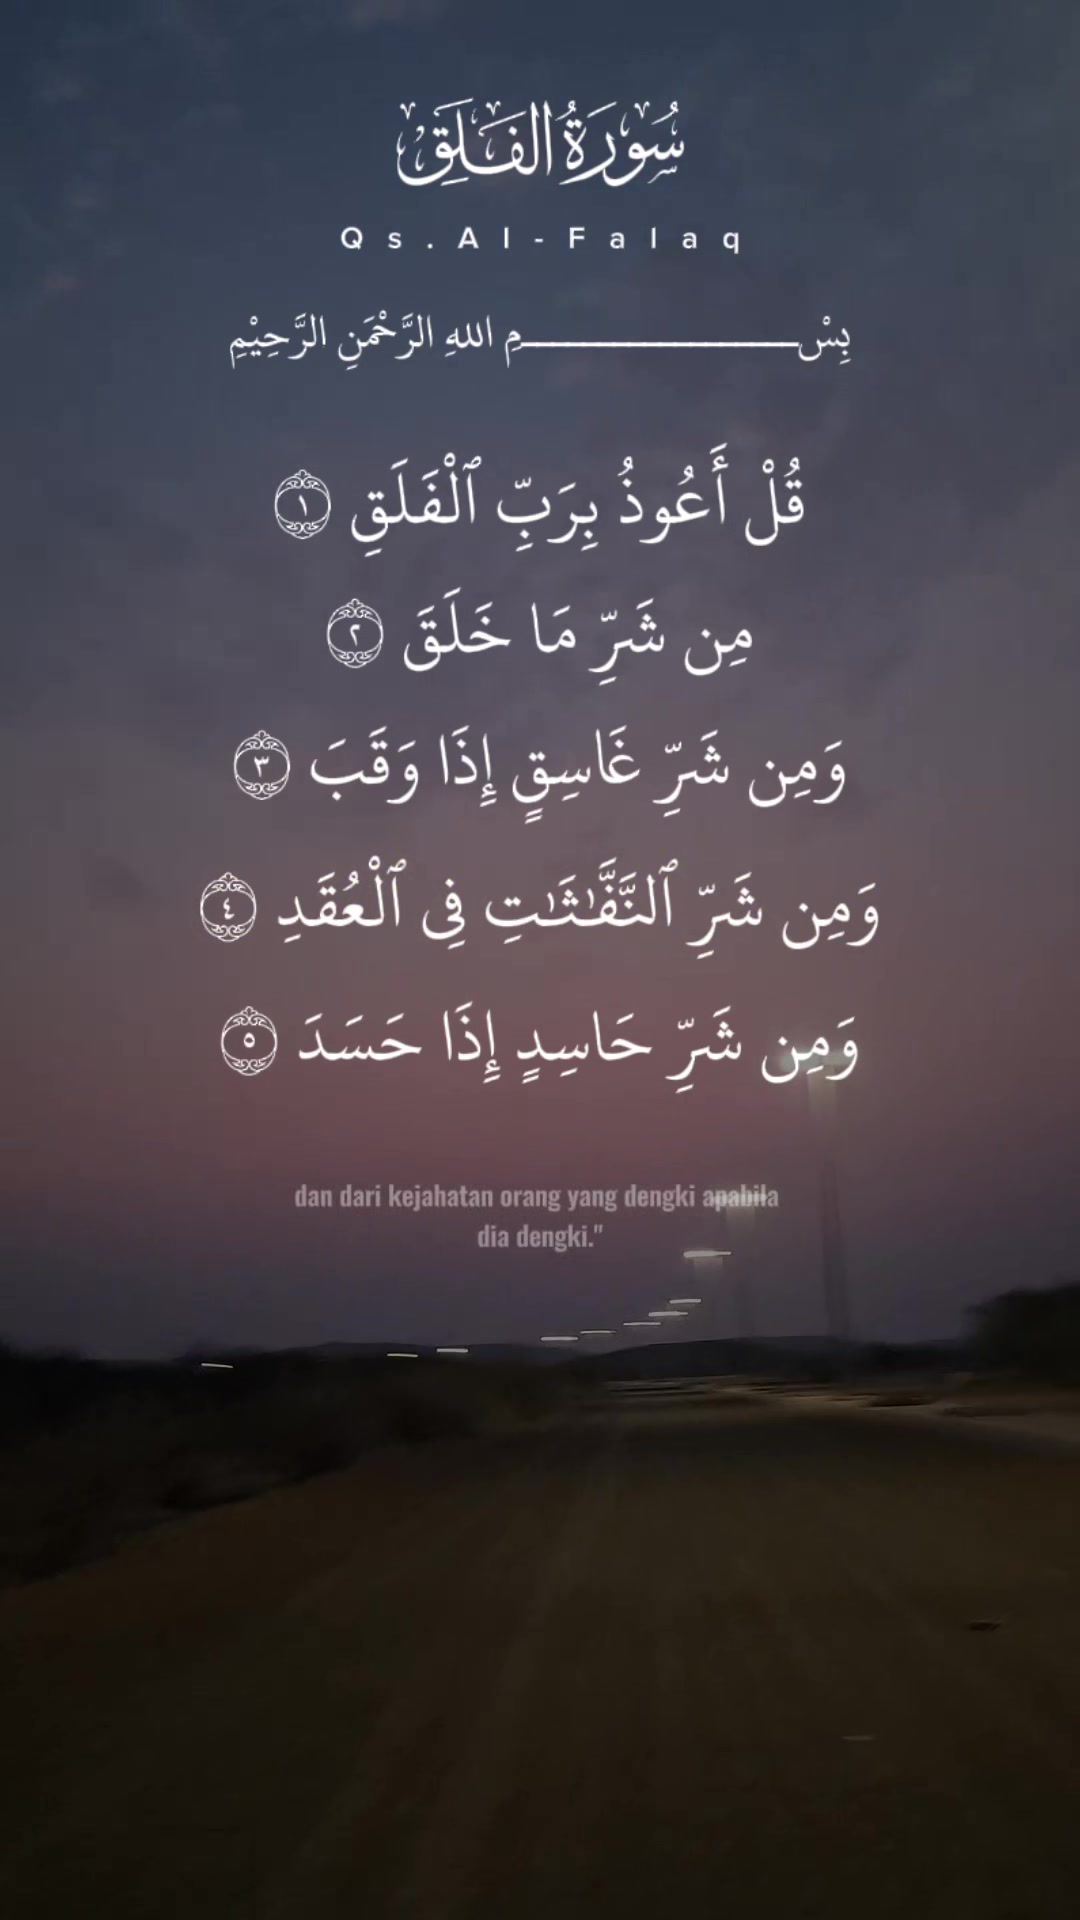 سُورَةُ الفَلَقِ
Qs.Al-Falaq
بِسْــــــــــــــــــمِ اللهِ الرَّحْمَنِ الرَّحِيْمِ
قُلْ أَعُوذُ بِرَبِّ ٱلْفَلَقِ ١
مِن شَرِّ مَا خَلَقَ ٢
وَمِن شَرِّ غَاسِقٍ إِذَا وَقَبَ ٣
وَمِن شَرِّ ٱلنَّفَّٰثَٰتِ فِى ٱلْعُقَدِ ٤
وَمِن شَرِّ حَاسِدٍ إِذَا حَسَدَ ٥
dan dari kejahatan orang yang dengki apabila
dia dengki."